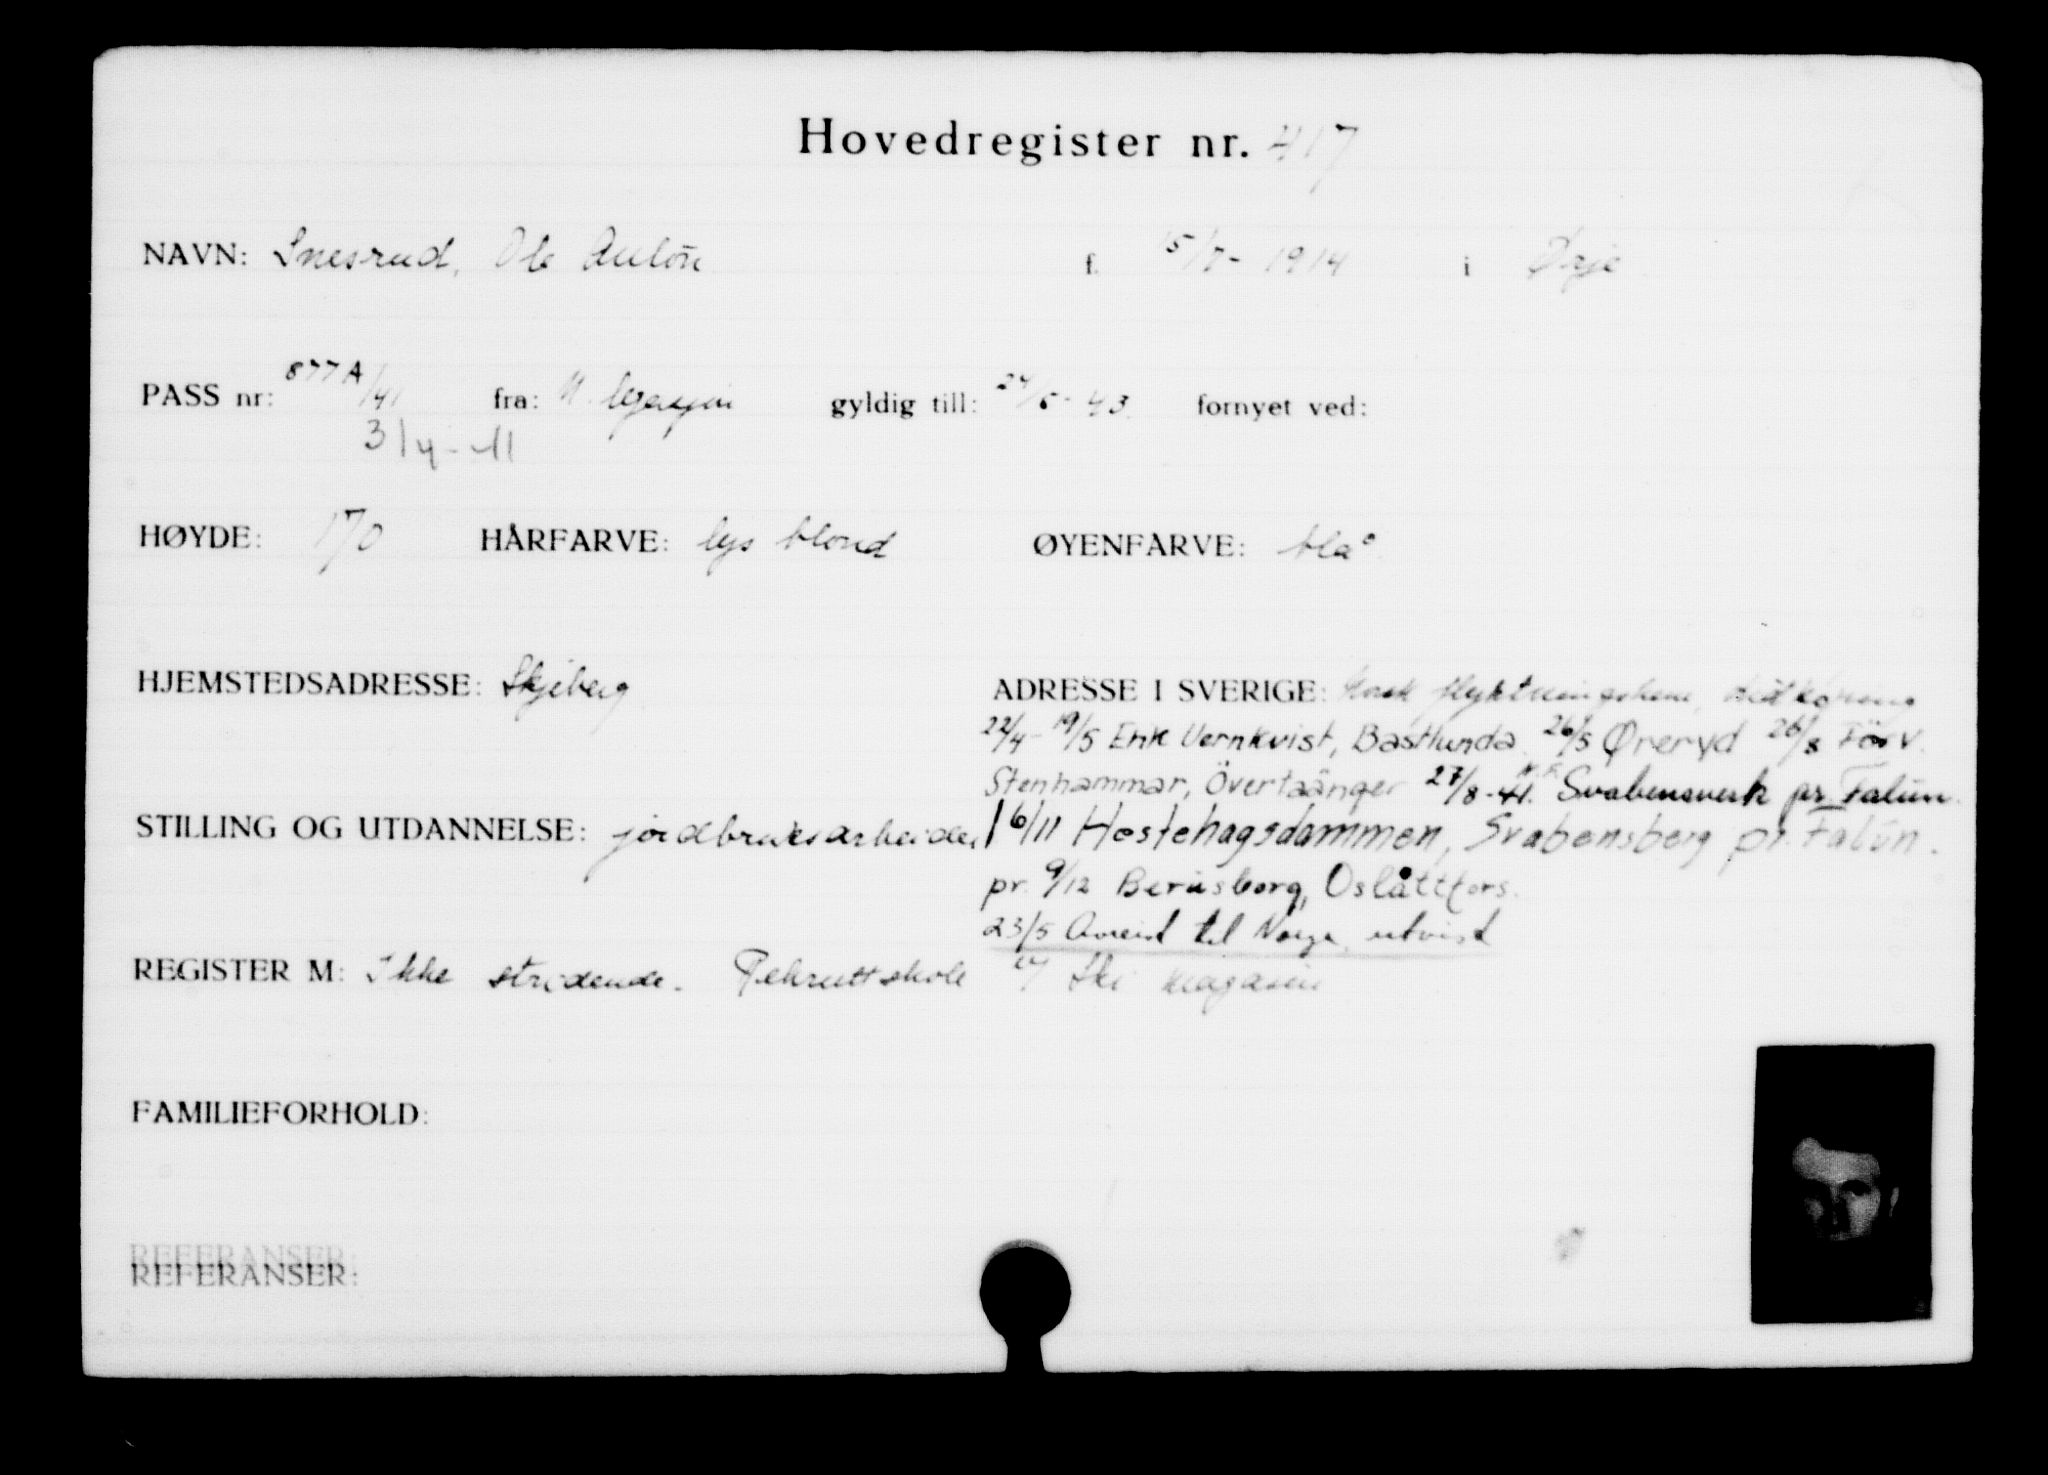 Hovedregister nr. 417
NAVN: Snesrud, Ole Anton f. 15/7 - 1914 i Ørje
PASS nr: 877A/41 fra: N. legasjon gyldig till: 24/5 - 43. fornyet ved:
3/4 - 41
HØYDE: 170 HÅRFARVE: lys blond ØYENFARVE: blå
HJEMSTEDSADRESSE: Skjeberg ADRESSE I SVERIGE: Norsk flyktningshem,
22/4 - 19/5 Erik Vernkvist, Bastlunda. 26/5 Øreryd 26/8 Förv.
Stenhammar, Övertäänger 27/8 - 41. Svabensverk pr Falun.
STILLING OG UTDANNELSE: jordbruksarbeider
16/11 Hestehagsdammen, Svabensberg pr. Falun.
pr. 9/12 Beriusborg, Oslättfors.
23/5 Avreist til Norge, utvist
REGISTER M: Ikke stridende. Rekruttskole Ski magasin
FAMILIEFORHOLD:
REFERANSER:
REFERANSER: